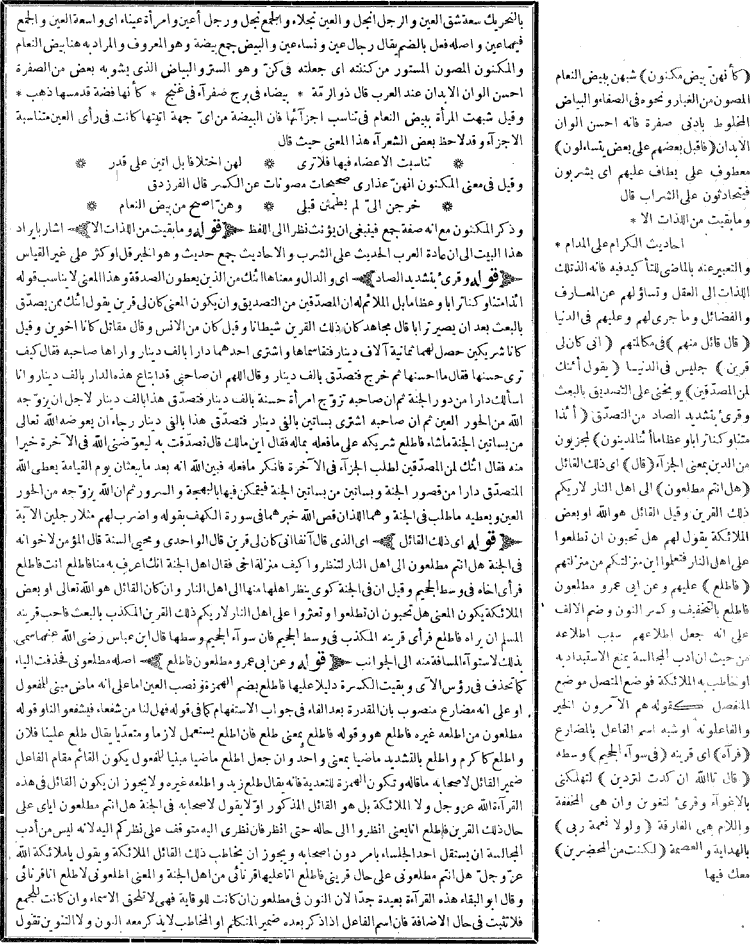 بالتحريك سعة شق العين والرجل أنجل والعين نجلاء والجمع نجل ورجل أعين وامرأة عيناء اى واسعة العين والجمع
فيهما عين واصله فعل بالضم يقال رجال عين ونساء عين والبيض جمع بيضة وهو المعروف والمراد به هنا بيض النعام
والمكنون المصون المستور من كننته اى جعلته فى كن وهو الستر والبياض الذى يشوبه بعض من الصفرة
احسن الوان الابدان عند العرب قال ذو الرمة * بيضاء فى برج صفرآء فى غنج * كأنها فضة قد مسها ذهب *
وقيل شبهت المرأة ببيض النعام فى تناسب اجزآئها فان البيضة من اى جهة اتيتها كانت فى رأى العين متناسبة
الاجزآء وقد لاحظ بعض الشعرآء هذا المعنى حيث قال
* تناسبت الاعضاء فيها فلا ترى * لهن اختلافا بل اتين على قدر *
وقيل فى معنى المكنون انهن عذارى صحيحات مصونات عن الكسر قال الفرزدق
* خرجن الىّ لم يطمثن قبلى * وهن اصح من بيض النعام *
وذكر المكنون مع انه صفة جمع فينبغى ان يؤنث نظرا الى اللفظ قوله وما بقيت من اللذات الا اشار بايراد
هذا البيت الى ان عادة العرب الحديث على الشرب والاحاديث جمع حديث وهو الخبر قل او كثر على غير القياس
قوله وقرئ بتشديد الصاد اى والدال ومعناها ائنك من الذين يعطون الصدقة وهذا المعنى لا يناسب قوله
ائذا متنا وكنا ترابا وعظاما بل الملائم له ان المصدقين من التصديق وان يكون المعنى كان لى قرين يقول ائنك ممن يصدق
بالبعث بعد ان يصير ترابا قال مجاهد كان ذلك القرين شيطانا وقيل كان من الانس وقال مقاتل كانا اخوين وقيل
كانا شريكين حصل لهما ثمانية آلاف دينار فتقاسماها واشترى احدهما دارا بالف دينار واراها صاحبه فقال كيف
ترى حسنها فقال ما احسنها ثم خرج فتصدق بالف دينار وقال اللهم ان صاحبى قد ابتاع هذه الدار بالف دينار وانا
اسألك دارا من دور الجنة ثم ان صاحبه تزوج امرأة حسنة بالف دينار فتصدق هذا بالف دينار لاجل ان يزوجه
الله من الحور العين ثم ان صاحبه اشترى بساتين بالفى دينار فتصدق هذا بالفى دينار رجاء ان يعوضه الله تعالى
من بساتين الجنة ماشاء فاطلع شريكه على مافعله بماله فقال اين مالك قال تصدقت به ليعوضنى الله فى الآخرة خيرا
منه فقال ائنك لمن المصدقين لطلب الجزآء فى الآخرة فانكر مافعله فبين الله انه بعد مابعثنا يوم القيامة يعطى الله
المتصدق دارا من قصور الجنة وبساتين من بساتين الجنة فيتمكن فيها بالبهجة والسرور ثم ان الله يزوجه من الحور
العين ويعطيه ماطلب فى الجنة وهما اللذان قص الله خبرهما فى سورة الكهف بقوله واضرب لهم مثلا رجلين الآية
قوله اى ذلك القائل اى الذى قال آنفا انى كان لى قرين قال الواحدى ومحيى السنة قال المؤمن لاخوانه
فى الجنة هل انتم مطلعون الى اهل النار لتنظروا كيف منزلة اخى فقال اهل الجنة انك اعرف به منا فاطلع انت فاطلع
فرأى اخاه فى وسط الجحيم وقيل ان فى الجنة كوى ينظر اهلها منها الى اهل النار وان كان القائل هو الله تعالى او بعض
الملائكة يكون المعنى هل تحبون ان تطلعوا وتعثروا على اهل النار لاريكم ذلك القرين المكذب بالبعث فاحب قرينه
المسلم ان يراه فاطلع فرأى قرينه المكذب فى وسط الجحيم فان سوآء الجحيم وسطها قال ابن عباس رضى الله عنهما سمى
بذلك لاستوآء المسافة منه الى الجوانب قوله وعن ابى عمرو مطلعون فاطلع اصله مطلعونى فحذفت الياء
كما تحذف فى رؤس الآى وبقيت الكسرة دليلا عليها فاطلع بضم الهمزة ونصب العين اما على انه ماض مبنى للمفعول
او على انه مضارع منصوب بان المقدرة بعد الفاء فى جواب الاستفهام كما فى قوله فهل لنا من شفعاء فيشفعوا لنا وقوله
مطلعون من اطلعه غيره فاطلع هو وقوله فاطلع بمعنى طلع فان اطلع يستعمل لازما ومتعديا يقال طلع علينا فلان
واطلع كاكرم واطلع بالتشديد ماضيا بمعنى واحد وان جعل اطلع ماضيا مبنيا للمفعول يكون القائم مقام الفاعل
ضمير القائل لاصحابه ماقاله وتكون الهمزة للتعدية فانه يقال طلع زيد واطلعه غيره ولا يجوز ان يكون القائل فى هذه
القرآءة الله عز وجل ولا الملائكة بل هو القائل المذكور اولا يقول لاصحابه فى الجنة هل انتم مطلعون اياى على
حال ذلك القرين فاطلع انا يعنى انظروا الى حاله حتى انظر فان نظرى اليه متوقف على نظركم اليه لانه ليس من أدب
المجالسة ان يستقل احد الجلساء بامر دون اصحابه ويجوز ان يخاطب ذلك القائل الملائكة ويقول ياملائكة الله
عز وجل هل انتم مطلعونى على حال قرينى فاطلع انا عليها اقرنائى من اهل الجنة والمعنى اطلعونى لاطلع انا قرنائى
وقال ابو البقاء هذه القرآءة بعيدة جدا لان النون فى مطلعون ان كانت للوقاية فهى لا تلحق الاسماء وان كانت للجمع
فلا تثبت فى حال الاضافة فان اسم الفاعل اذا ذكر بعده ضمير المتكلم او المخاطب لا يذكر معه النون ولا التنوين تقول
(كأنهن بيض مكنون) شبهن ببيض النعام
المصون من الغبار ونحوه فى الصفاء والبياض
المخلوط بادنى صفرة فانه احسن الوان
الابدان (فاقبل بعضهم على بعض يتساءلون)
معطوف على يطاف عليهم اى يشربون
فيتحادثون على الشراب قال
وما بقيت من اللذات الا *
احاديث الكرام على المدام *
والتعبير عنه بالماضى للتأكيد فيه فانه الذ تلك
اللذات الى العقل وتساؤلهم عن المعارف
والفضائل وما جرى لهم وعليهم فى الدنيا
(قال قائل منهم) فى مكالمتهم (انى كان لى
قرين) جليس فى الدنيا (يقول أئنك
لمن المصدقين) يوبخنى على التصديق بالبعث
وقرئ بتشديد الصاد من التصدق (أئذا
متنا وكنا ترابا وعظاما أئنا لمدينون) لمجزيون
من الدين بمعنى الجزآء (قال) اى ذلك القائل
(هل انتم مطلعون) الى اهل النار لاريكم
ذلك القرين وقيل القائل هو الله او بعض
الملائكة يقول لهم هل تحبون ان تطلعوا
على اهل النار فتعلموا اين منزلتكم من منزلتهم
(فاطلع) عليهم وعن ابى عمرو مطلعون
فاطلع بالتخفيف وكسر النون وضم الالف
على انه جعل اطلاعهم سبب اطلاعه
من حيث ان ادب المجالسة يمنع الاستبداد به
او خاطب به الملائكة فوضع المتصل موضع
المنفصل كقوله هم الآمرون الخير
والفاعلونه او شبه اسم الفاعل بالمضارع
(فرآه) اى قرينه (فى سوآء الجحيم) وسطه
(قال تالله ان كدت لتردين) لتهلكنى
بالاغوآء وقرئ لتغوين وان هى المخففة
واللام هى الفارقة (ولولا نعمة ربى)
بالهداية والعصمة (لكنت من المحضرين)
معك فيها